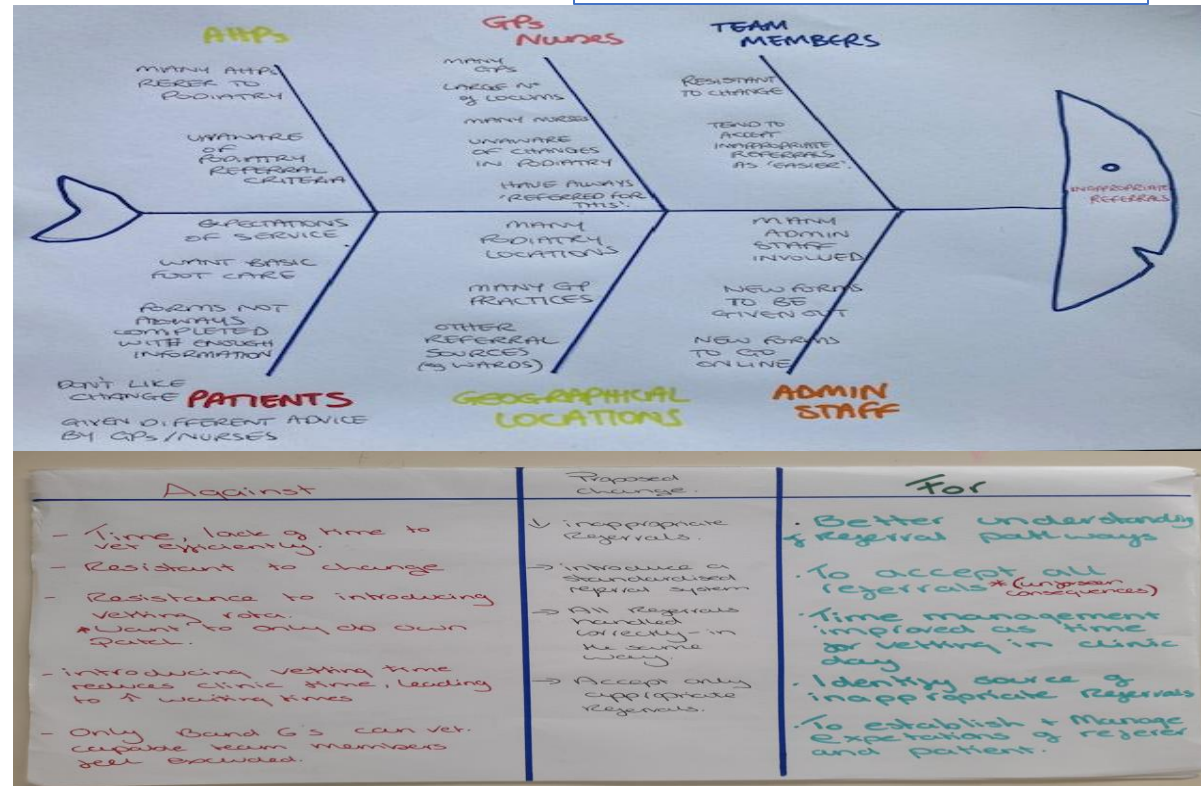 AHPs
MANY AHPs
RERER TO
PODIATRY
UNAWARE
OF
PODIATRY
REFERRAL
CRITERIA
GPs
Nurses
MANY
GPs
LARGE No
of LOCUMS
MANY NURSES
UNAWARE
OF CHANGES
IN PODIATRY
HAVE ALWAYS
'REFERRED FOR
THIS'.
TEAM
MEMBERS
RESISTANT
TO CHANGE
TEND TO
ACCEPT
INAPPROPRIATE
REFERRALS
AS 'EASIER'.
INAPPROPRIATE
REFERRALS
EXPECTATIONS
OF SERVICE
WANT BASIC
FOOT CARE
FORMS NOT
ALWAYS
COMPLETED
WITH ENOUGH
INFORMATION
DON'T LIKE
CHANGE
PATIENTS
GIVEN DIFFERENT ADVICE
BY GPs/NURSES
MANY
PODIATRY
LOCATIONS
MANY GP
PRACTICES
OTHER
REFERRAL
SOURCES
(eg WARDS)
GEOGRAPHICAL
LOCATIONS
MANY
ADMIN
STAFF
INVOLVED
NEW FORMS
TO BE
GIVEN OUT
NEW FORMS
TO GO
ONLINE
ADMIN
STAFF
Against
- Time, lack of time to
vet efficiently.
- Resistant to change
- Resistance to introducing
vetting rota.
* Want to only do own
patch.
- introducing vetting time
reduces clinic time, leading
to ↑ waiting times
- Only Band 6's can vet.
capable team members
feel excluded.
Proposed
change.
↓ inappropriate
Referrals.
→ introduce a
standardised
referral system
→ All Referrals
handled
correctly - in
the same
way.
→ Accept only
appropriate
Referrals.
For
· Better understanding
of Referral pathways
· To accept all
referrals * (unforseen
consequences)
· Time management
improved as time
for vetting in clinic
day
· Identify source of
inappropriate Referrals
· To establish + Manage
expetations of referer
and patient.